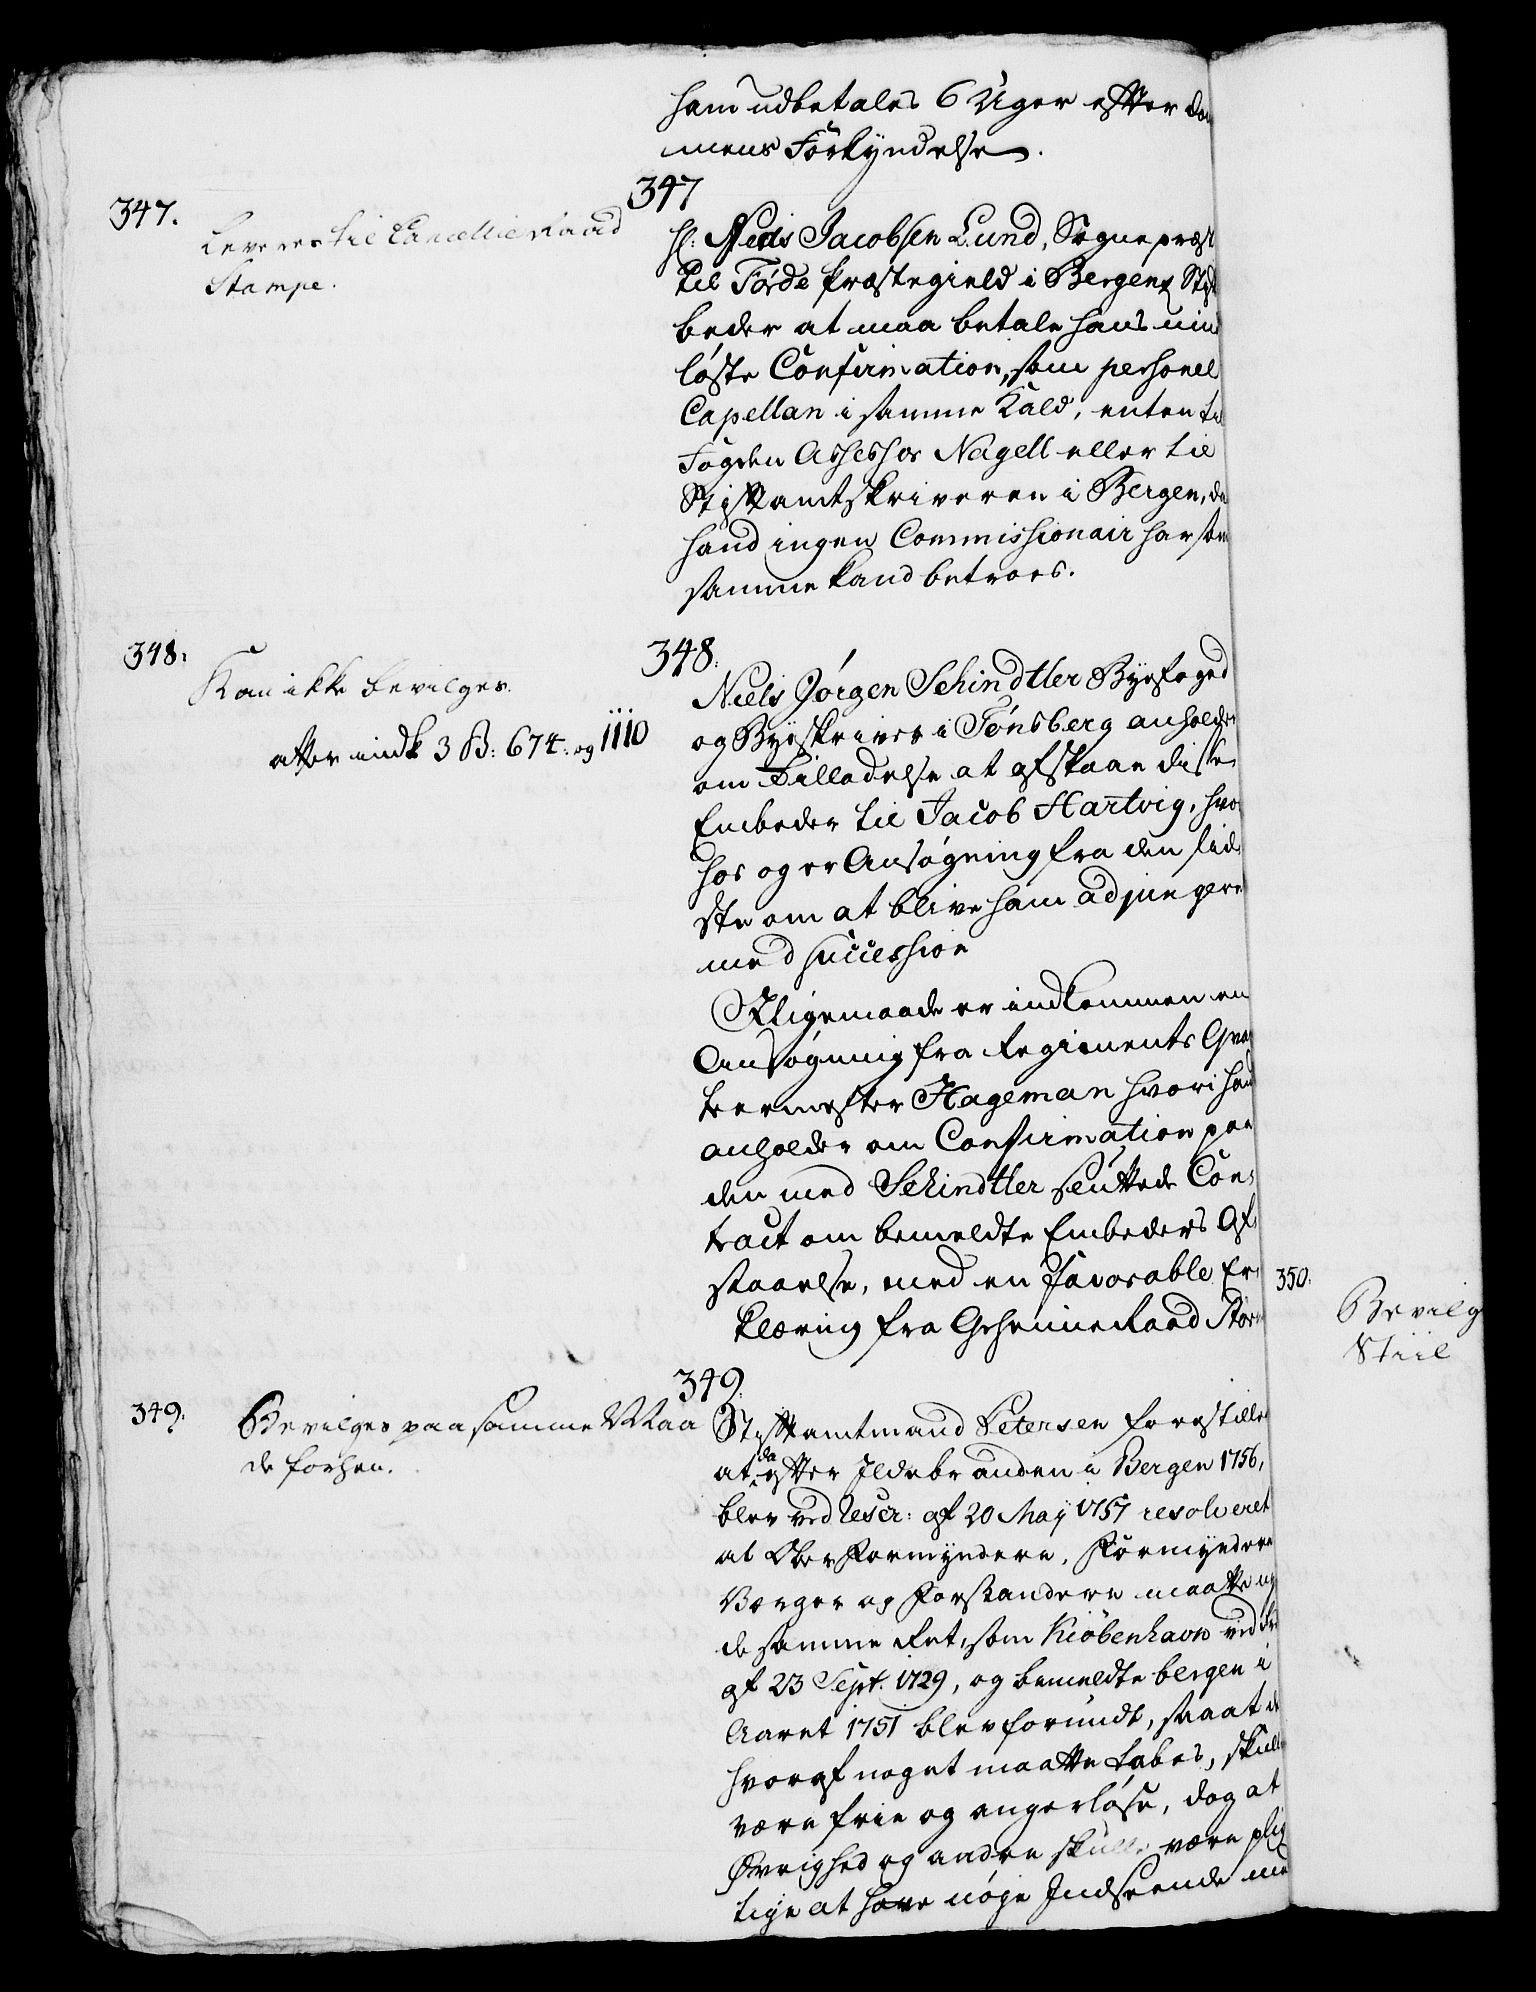 ham udbetales 6 Uger efter Dom
mens Forkyndelse.
347.
Leveres til Cancellie Raad
Stampe.
347
Hr: Niels Jacobsen Lund, Sognepræst
til Førde Præstegield i Bergens Stift
beder at maa betale hans uind
løste Confirmation, som personel
Capellan i samme Kald, enten til
Fogden Assessor Nagell eller til
Stiftamtskriveren i Bergen, da
hand ingen Commissionair har som
samme kand betroes.
348.
Kan ikke bevilges.
atter indk 3 B: 674. og 1110
348.
Niels Jørgen Schindtler Byefoged
og Byeskriver i Tønsberg anholder
om Tilladelse at afstaae disse
Embeder til Jacob Hartvig, hvor
hos og er Ansøgning fra den sid
ste om at blive ham adjungeret
med succession
Ligemaade er indkommen en
Ansøgning fra Regiments Qvar
teermester Hageman hvori hand
anholder om Confirmation paa
den med Schindtler sluttede Con
tract om bemeldte Embeders Af
staaelse, med en favorable Er
klæring fra Geheime Raad Storm
349.
Bevilges paa samme Maa
de forhen.
349.
Stiftamtmand Petersen forestiller
at da efter Ildebranden i Bergen 1756,
blev ved Rescr: af 20 Maj 1757 resolveret
at Ober Formyndere, Formyndere
Værger og Forstandere maatte nyde
de samme Ret, som Kiöbenhavn ved
af 23 Sept. 1729, og bemeldte bergen i
Aaret 1751 blev forundt, saa at de
hvoraf noget maatte tabes, skulle
være frie og angerløse, dog at
Øvrighed og andre skulle være plig
tige at have nøje Indseende med
350.
Bevilg
Stiil